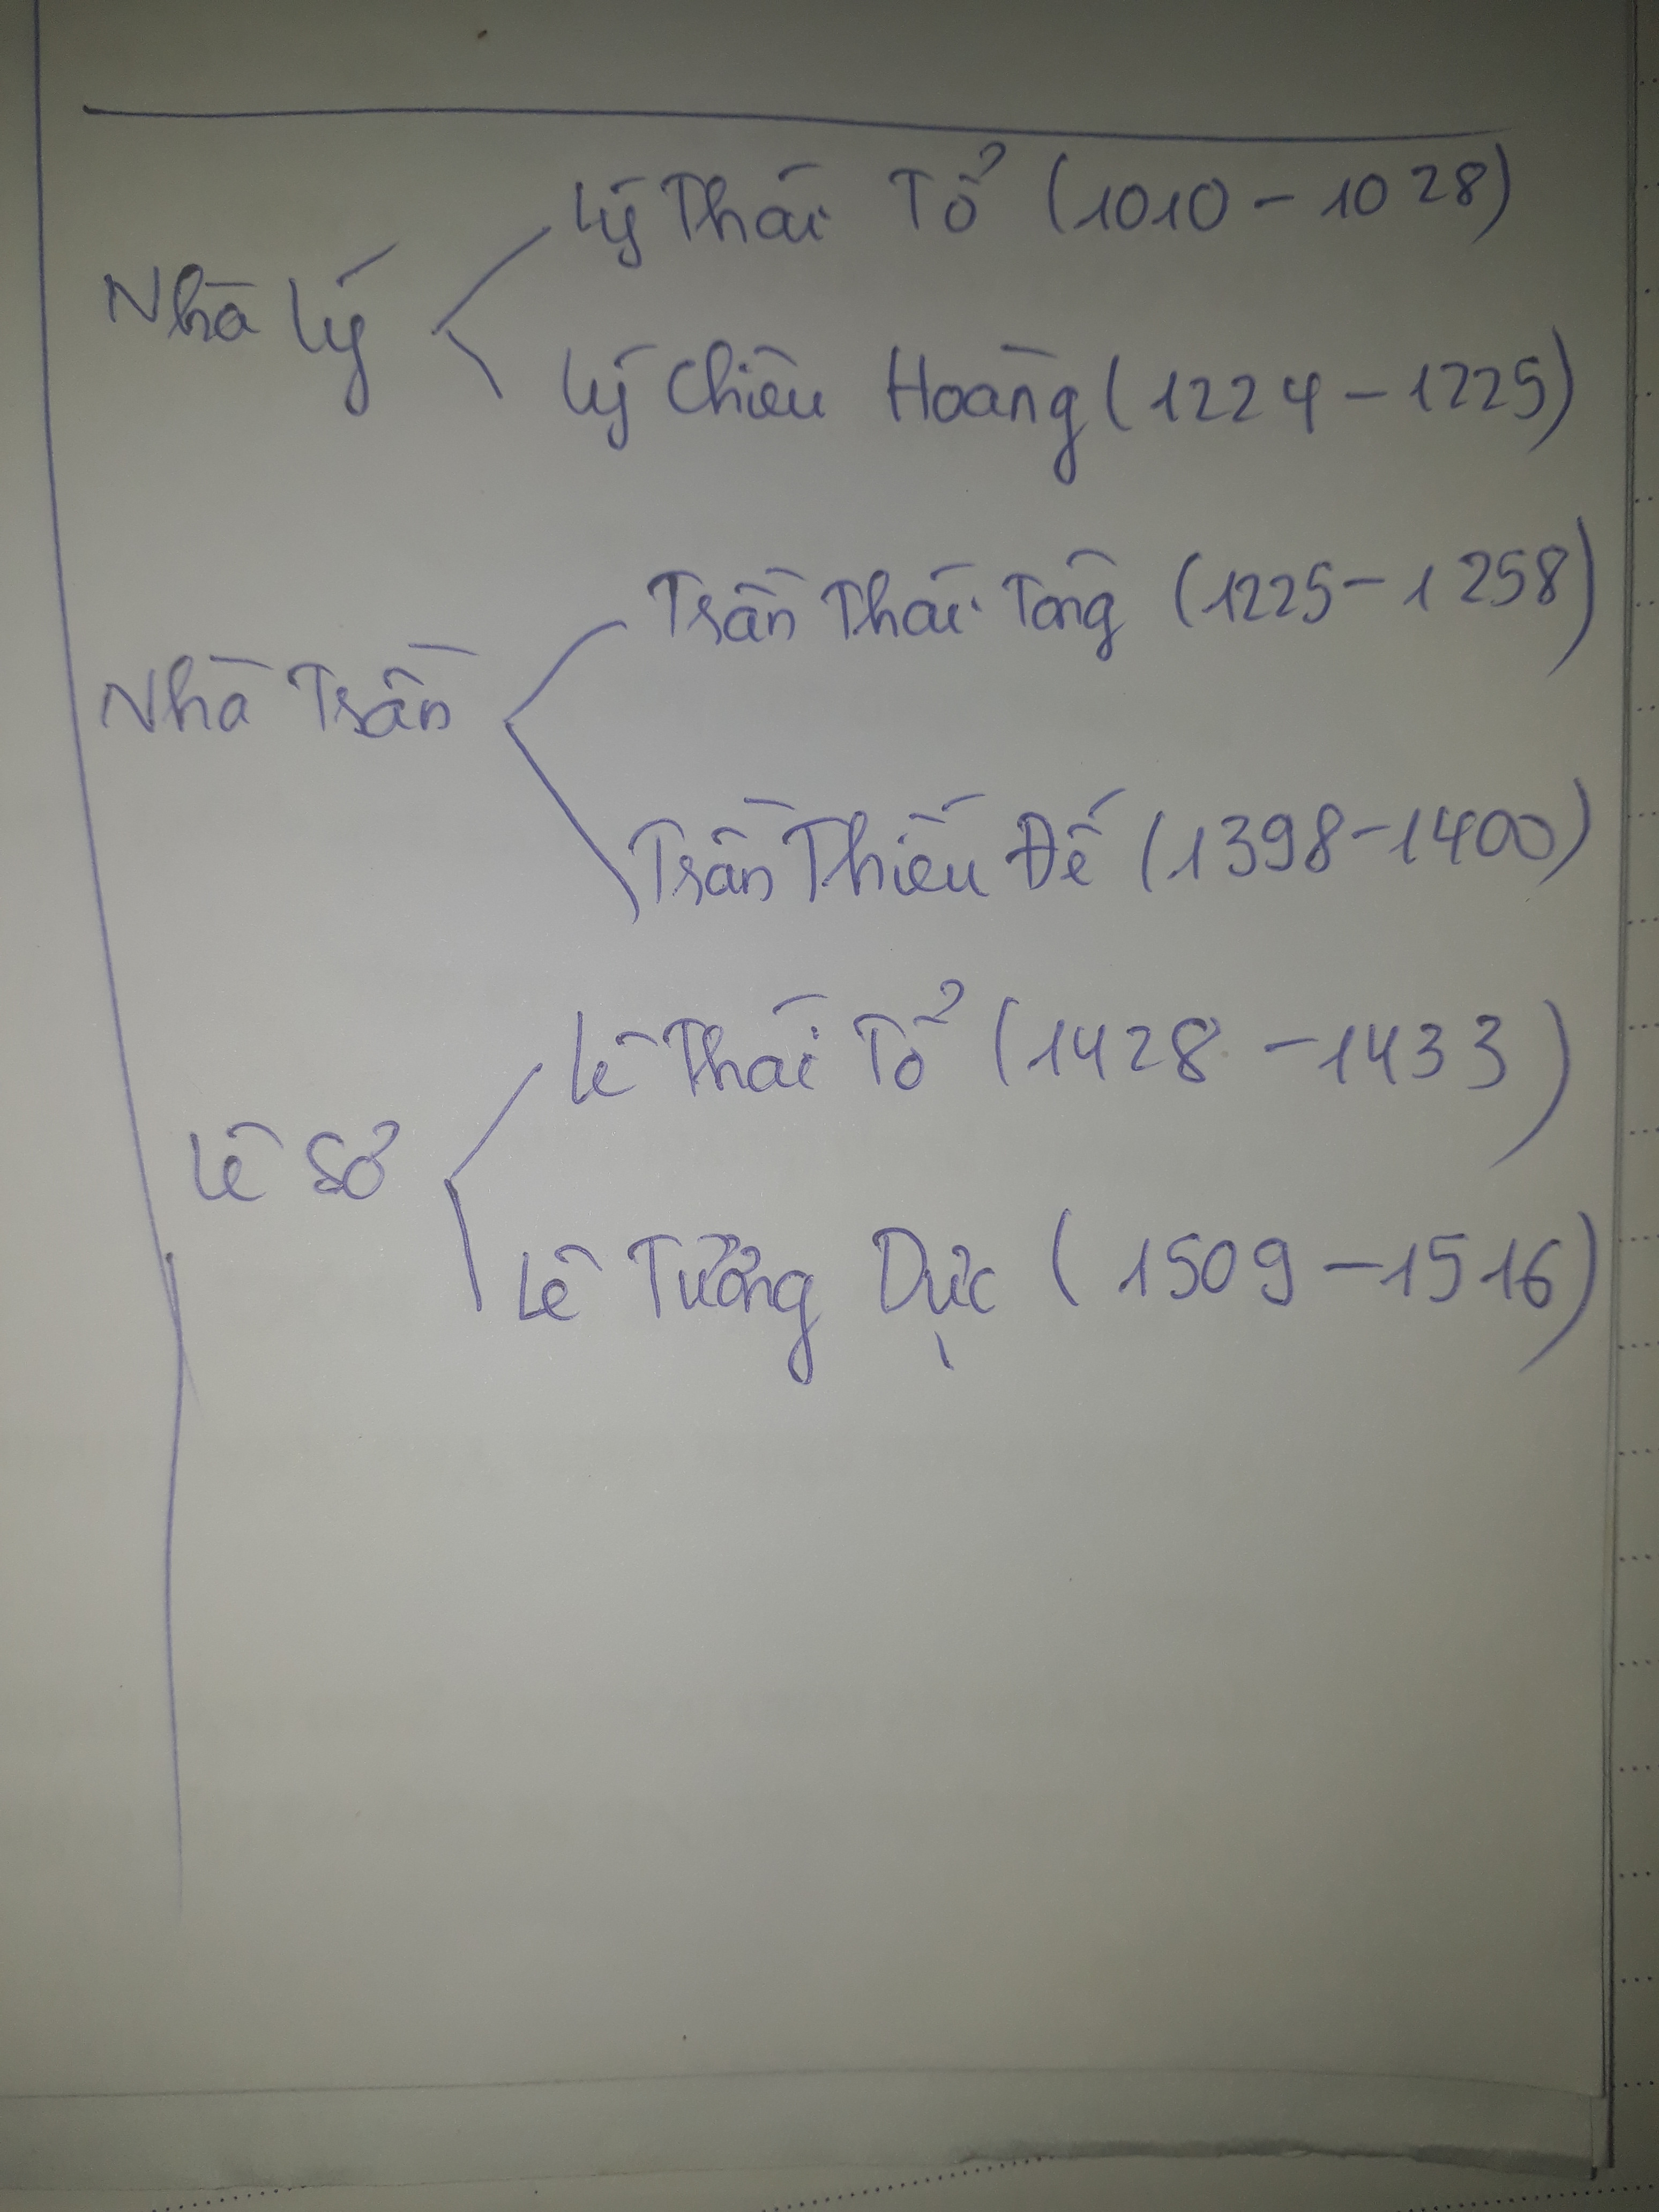 Lý Thái Tổ (1010 - 1028)
Nhà Lý
Lý Chiêu Hoàng (1224 - 1225)
Trần Thái Tông (1225 - 1258)
Nhà Trần
Trần Thiếu Đế (1398 - 1400)
Lê Thái Tổ (1428 - 1433)
Lê Sơ
Lê Tương Dực (1509 - 1516)